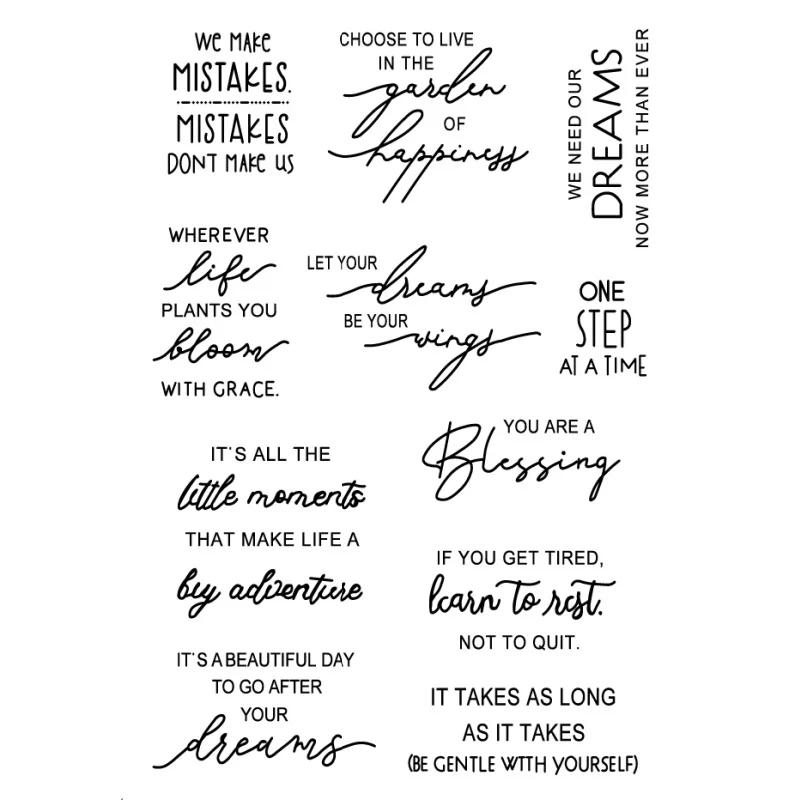 WE MAKE
MISTAKES.
MISTAKES
DON'T MAKE US
CHOOSE TO LIVE
IN THE
garden
OF
happiness
WE NEED OUR
DREAMS
NOW MORE THAN EVER
WHEREVER
life
PLANTS YOU
bloom
WITH GRACE.
LET YOUR
dreams
BE YOUR
wings
ONE
STEP
AT A TIME
YOU ARE A
Blessing
IT'S ALL THE
little moments
THAT MAKE LIFE A
big adventure
IF YOU GET TIRED,
learn to rest.
NOT TO QUIT.
IT'S A BEAUTIFUL DAY
TO GO AFTER
YOUR
dreams
IT TAKES AS LONG
AS IT TAKES
(BE GENTLE WITH YOURSELF)